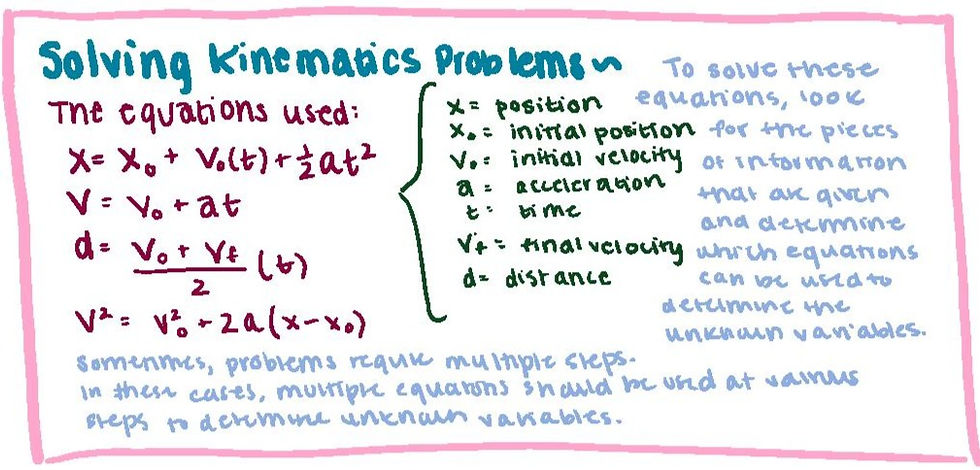 Solving Kinematics Problems~
The equations used:
x = x₀ + v₀(t) + ½at²
v = v₀ + at
d = v₀ + v_f / 2 (t)
v² = v₀² + 2a(x-x₀)
x = position
x₀ = initial position
v₀ = initial velocity
a = acceleration
t = time
v_f = final velocity
d = distance
To solve these
equations, look
for the pieces
of information
that are given
and determine
which equations
can be used to
determine the
unknown variables.
Sometimes, problems require multiple steps.
In these cases, multiple equations should be used at various
steps to determine unknown variables.